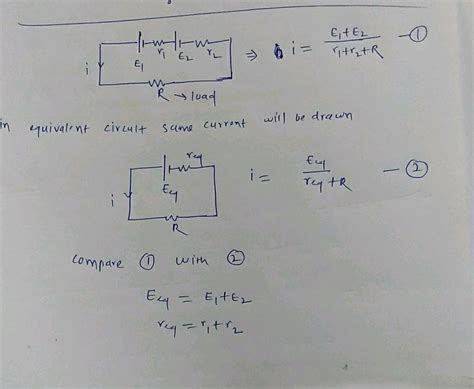 E₁ r₁ E₂ r₂ ⇒ i = (E₁+E₂)/(r₁+r₂+R) — ①
i
R → load
in equivalent circuit same current will be drawn
req
Eeq i = Eeq/(req+R) — ②
i
R
compare ① with ②
Eeq = E₁+E₂
req = r₁+r₂